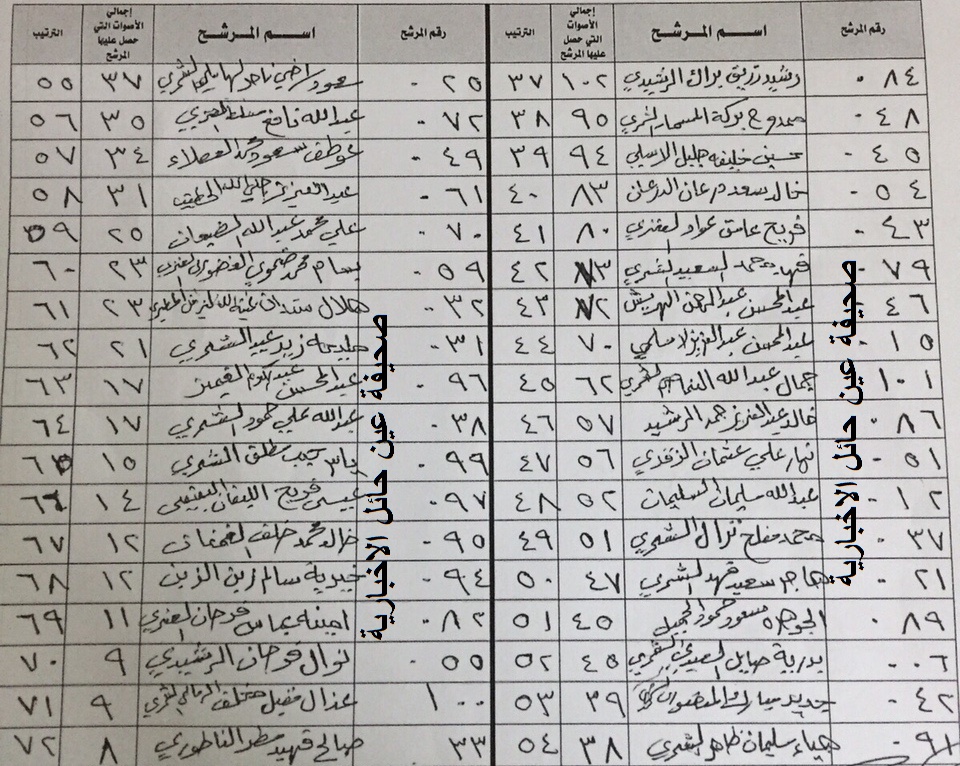 رقم المرشح اسم المرشح إجمالي الأصوات التي حصل عليها المرشح الترتيب رقم المرشح اسم المرشح إجمالي الأصوات التي حصل عليها المرشح الترتيب
٠٨٤ رشيد زريق براك الرشيدي ١٠٢ ٣٧ ٠٢٥ سعود راضي الشمري ٣٧ ٥٥
٠٤٨ ممدوح بركة المسمار الشمري ٩٥ ٣٨ ٠٧٢ عبدالله نافع العنزي ٣٥ ٥٦
٠٤٥ حسين خليفه جليل الاسلمي ٩٤ ٣٩ ٠٤٩ سعود محمد العصلاء ٣٤ ٥٧
٠٥٤ خالد سعد ٨٣ ٤٠ ٠٦١ عبدالعزيز ٣١ ٥٨
٠٤٣ فريح عاشق عواد العنزي ٨٠ ٤١ ٠٧٠ علي محمد عبدالله الضبعان ٢٥ ٥٩
٠٧٩ فهد حمد السعيد الشمري ٧٣ ٤٢ ٠٥٩ بسام محمد ٢٣ ٦٠
٠٤٦ عبدالمحسن عبدالرحمن ٧٢ ٤٣ ٠٣٢ هلال ٢٣ ٦١
٠١٥ عبدالمحسن عبدالعزيز الاسلمي ٧٠ ٤٤ ٠٣١ زيد عبيد الشمري ٢١ ٦٢
١٠١ جمال عبدالله الشمري ٦٢ ٤٥ ٠٩٦ عبدالمحسن عبدالكريم الغميز ١٧ ٦٣
٠٨٦ خالد عبدالعزيز حمد الرشيد ٥٧ ٤٦ ٠٣٨ عبدالله علي حمود الشمري ١٧ ٦٤
٠٥١ نهار علي عثمان الزقدي ٥٦ ٤٧ ٠٩٩ مطلق الشمري ١٥ ٦٥
٠١٢ عبدالله سليمان السليمان ٥٢ ٤٨ ٠٩٧ عيسى فريح ١٤ ٦٦
٠٣٧ محمد مفلح نزال الشمري ٥١ ٤٩ ٠٩٥ خالد محمد خلف ١٢ ٦٧
٠٢١ هاجر سعيد فهد الشمري ٤٧ ٥٠ ٠٩٤ خيرية سالم زبن الزبن ١٢ ٦٨
٠٨٩ الجوهره سعود حمود الجميل ٤٥ ٥١ ٠٨٢ امينه عباس فرحان العنزي ١١ ٦٩
٠٠٦ بدرية الشمري ٤٥ ٥٢ ٠٥٥ نوال فرحان الرشيدي ٩ ٧٠
٠٤٢ مبارك ٣٩ ٥٣ ١٠٠ عذال مقبل الشمري ٩ ٧١
٠٩١ هيا سليمان ظاهر الشمري ٣٨ ٥٤ ٣٣ صالح فهيد مطر الناطوري ٨ ٧٢
صحيفة عين حائل الاخبارية
صحيفة عين حائل الاخبارية